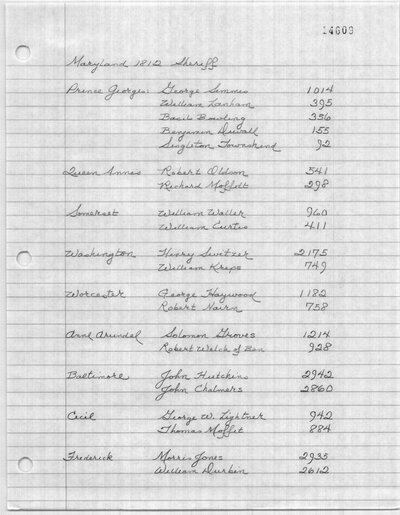 14608
Maryland 1812 Sheriff
Prince Georges: George Semmes 1014
William Lanham 395
Basil Bowling 356
Benjamin Duvall 155
Singleton Townshend 92
Queen Annes Robert Oldson 541
Richard Moffett 298
Somerset William Waller 960
William Curtis 411
Washington Henry Sweitzer 2175
William Kreps 749
Worcester George Haywood 1182
Robert Nairn 758
Ann Arundal Solomon Groves 1214
Robert Welch of Ben 928
Baltimore John Hutchins 2942
John Chalmers 2860
Cecil George W. Lightner 942
Thomas Moffit 884
Frederick Morris Jones 2935
William Durbin 2612